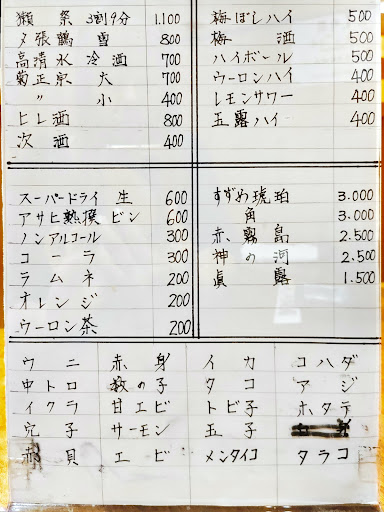 獺祭 3割9分 1.100
夕張鶴 雪 800
高清水 冷酒 700
菊正宗 大 700
〃 小 400
ヒレ酒 800
次酒 400
梅ぼしハイ 500
梅酒 500
ハイボール 500
ウーロンハイ 400
レモンサワー 400
玉露ハイ 400
スーパードライ 生 600
アサヒ熟撰 ビン 600
ノンアルコール 300
コーラ 300
ラムネ 200
オレンジ 200
ウーロン茶 200
すずめ琥珀 3.000
角 3.000
赤霧島 2.500
神の河 2.500
眞露 1.500
ウニ 赤身 イカ コハダ
中トロ 数の子 タコ アジ
イクラ 甘エビ トビ子 ホタテ
穴子 サーモン 玉子
赤貝 エビ メンタイコ タラコ